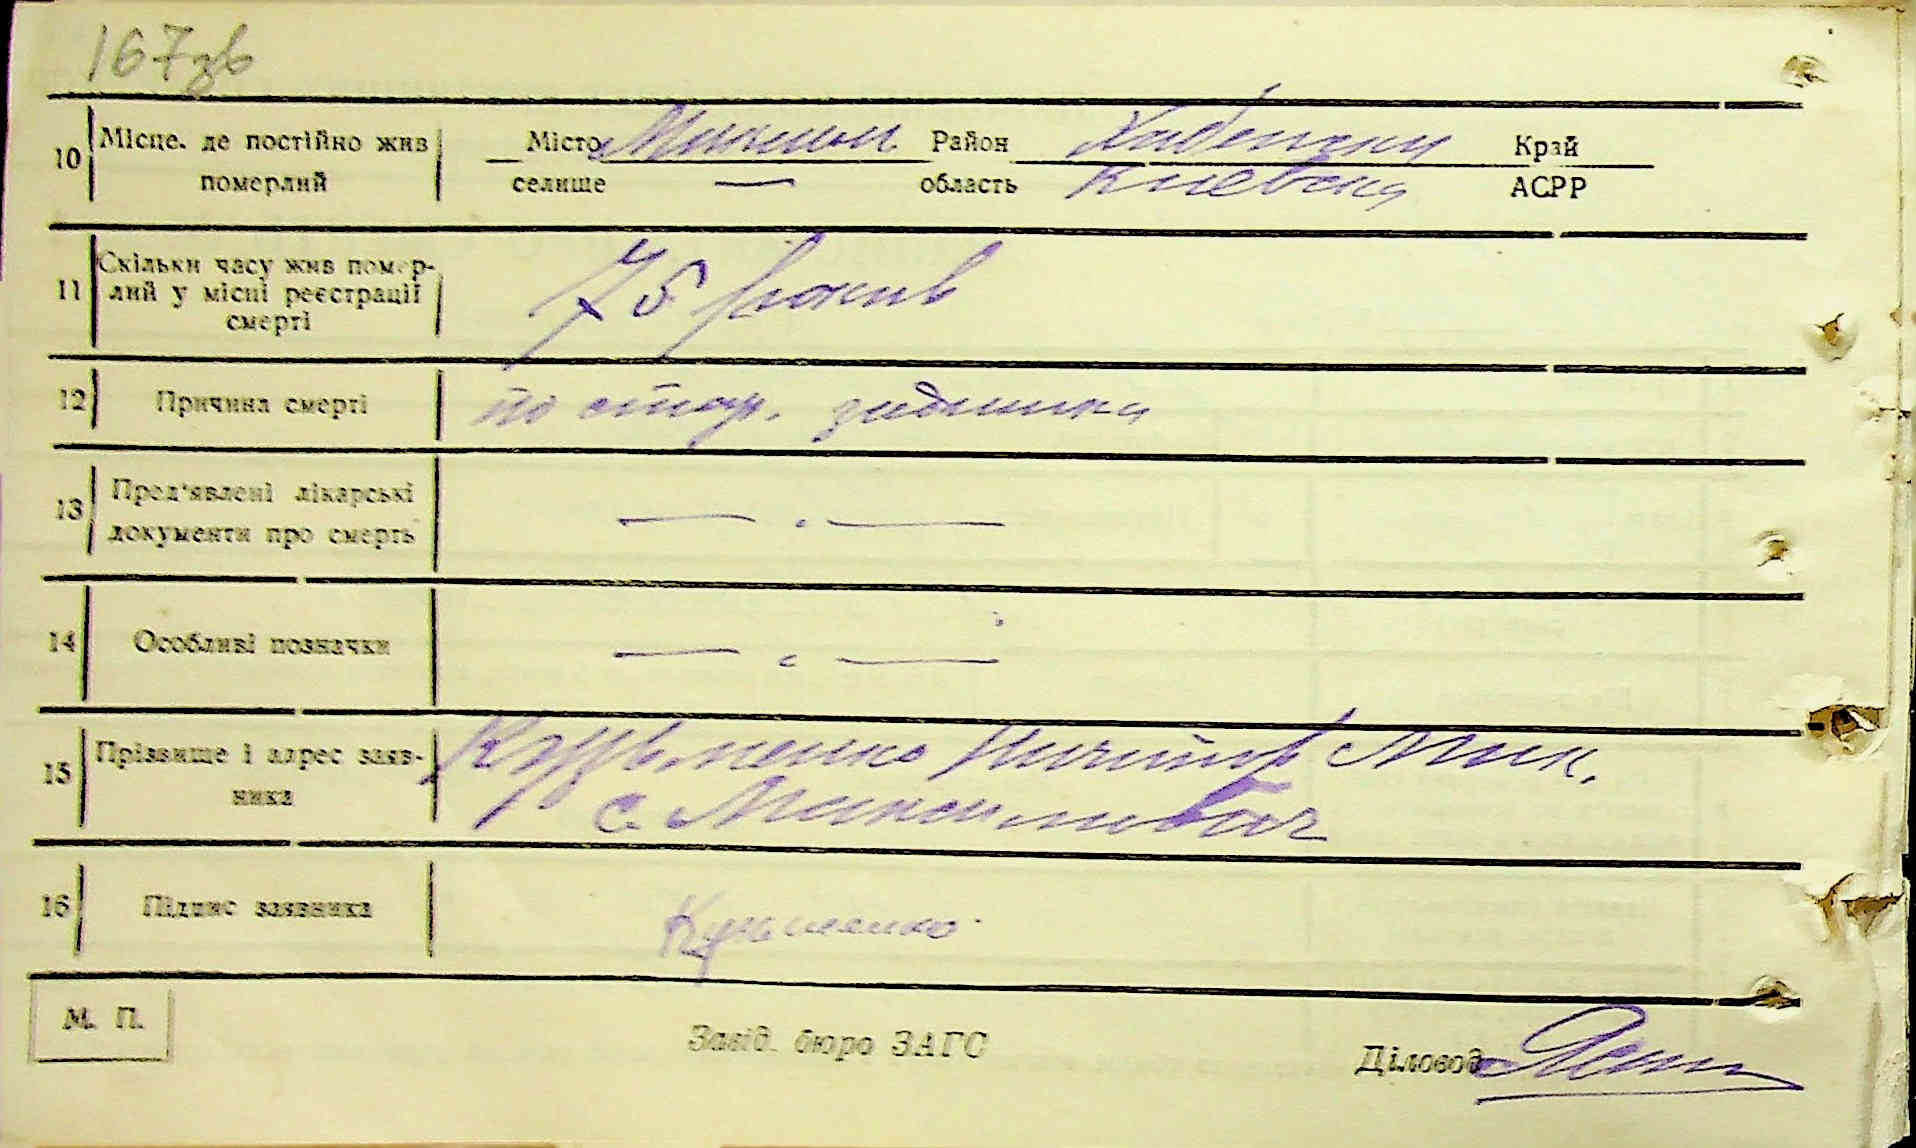 167зв
10 Місце, де постійно жив Місто Район Хабенськ Край
померлий селище — область Киевска АСРР
11 Скільки часу жив помер-
лий у місці реєстрації 75 років
смерті
12 Причина смерті по стар. задишка
13 Пред'явлені лікарські
документи про смерть — " —
14 Особливі позначки — " —
15 Прізвище і адрес заяв- Кузьменко Ничипір Мик.
ника с. Максимович
16 Підпис заявника Кузьменко
М. П. Завід. бюро ЗАГС Діловод